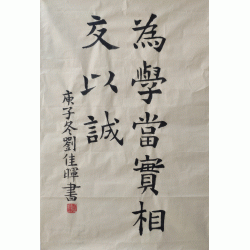 為學當實相
交以誠
庚子冬劉佳暉書